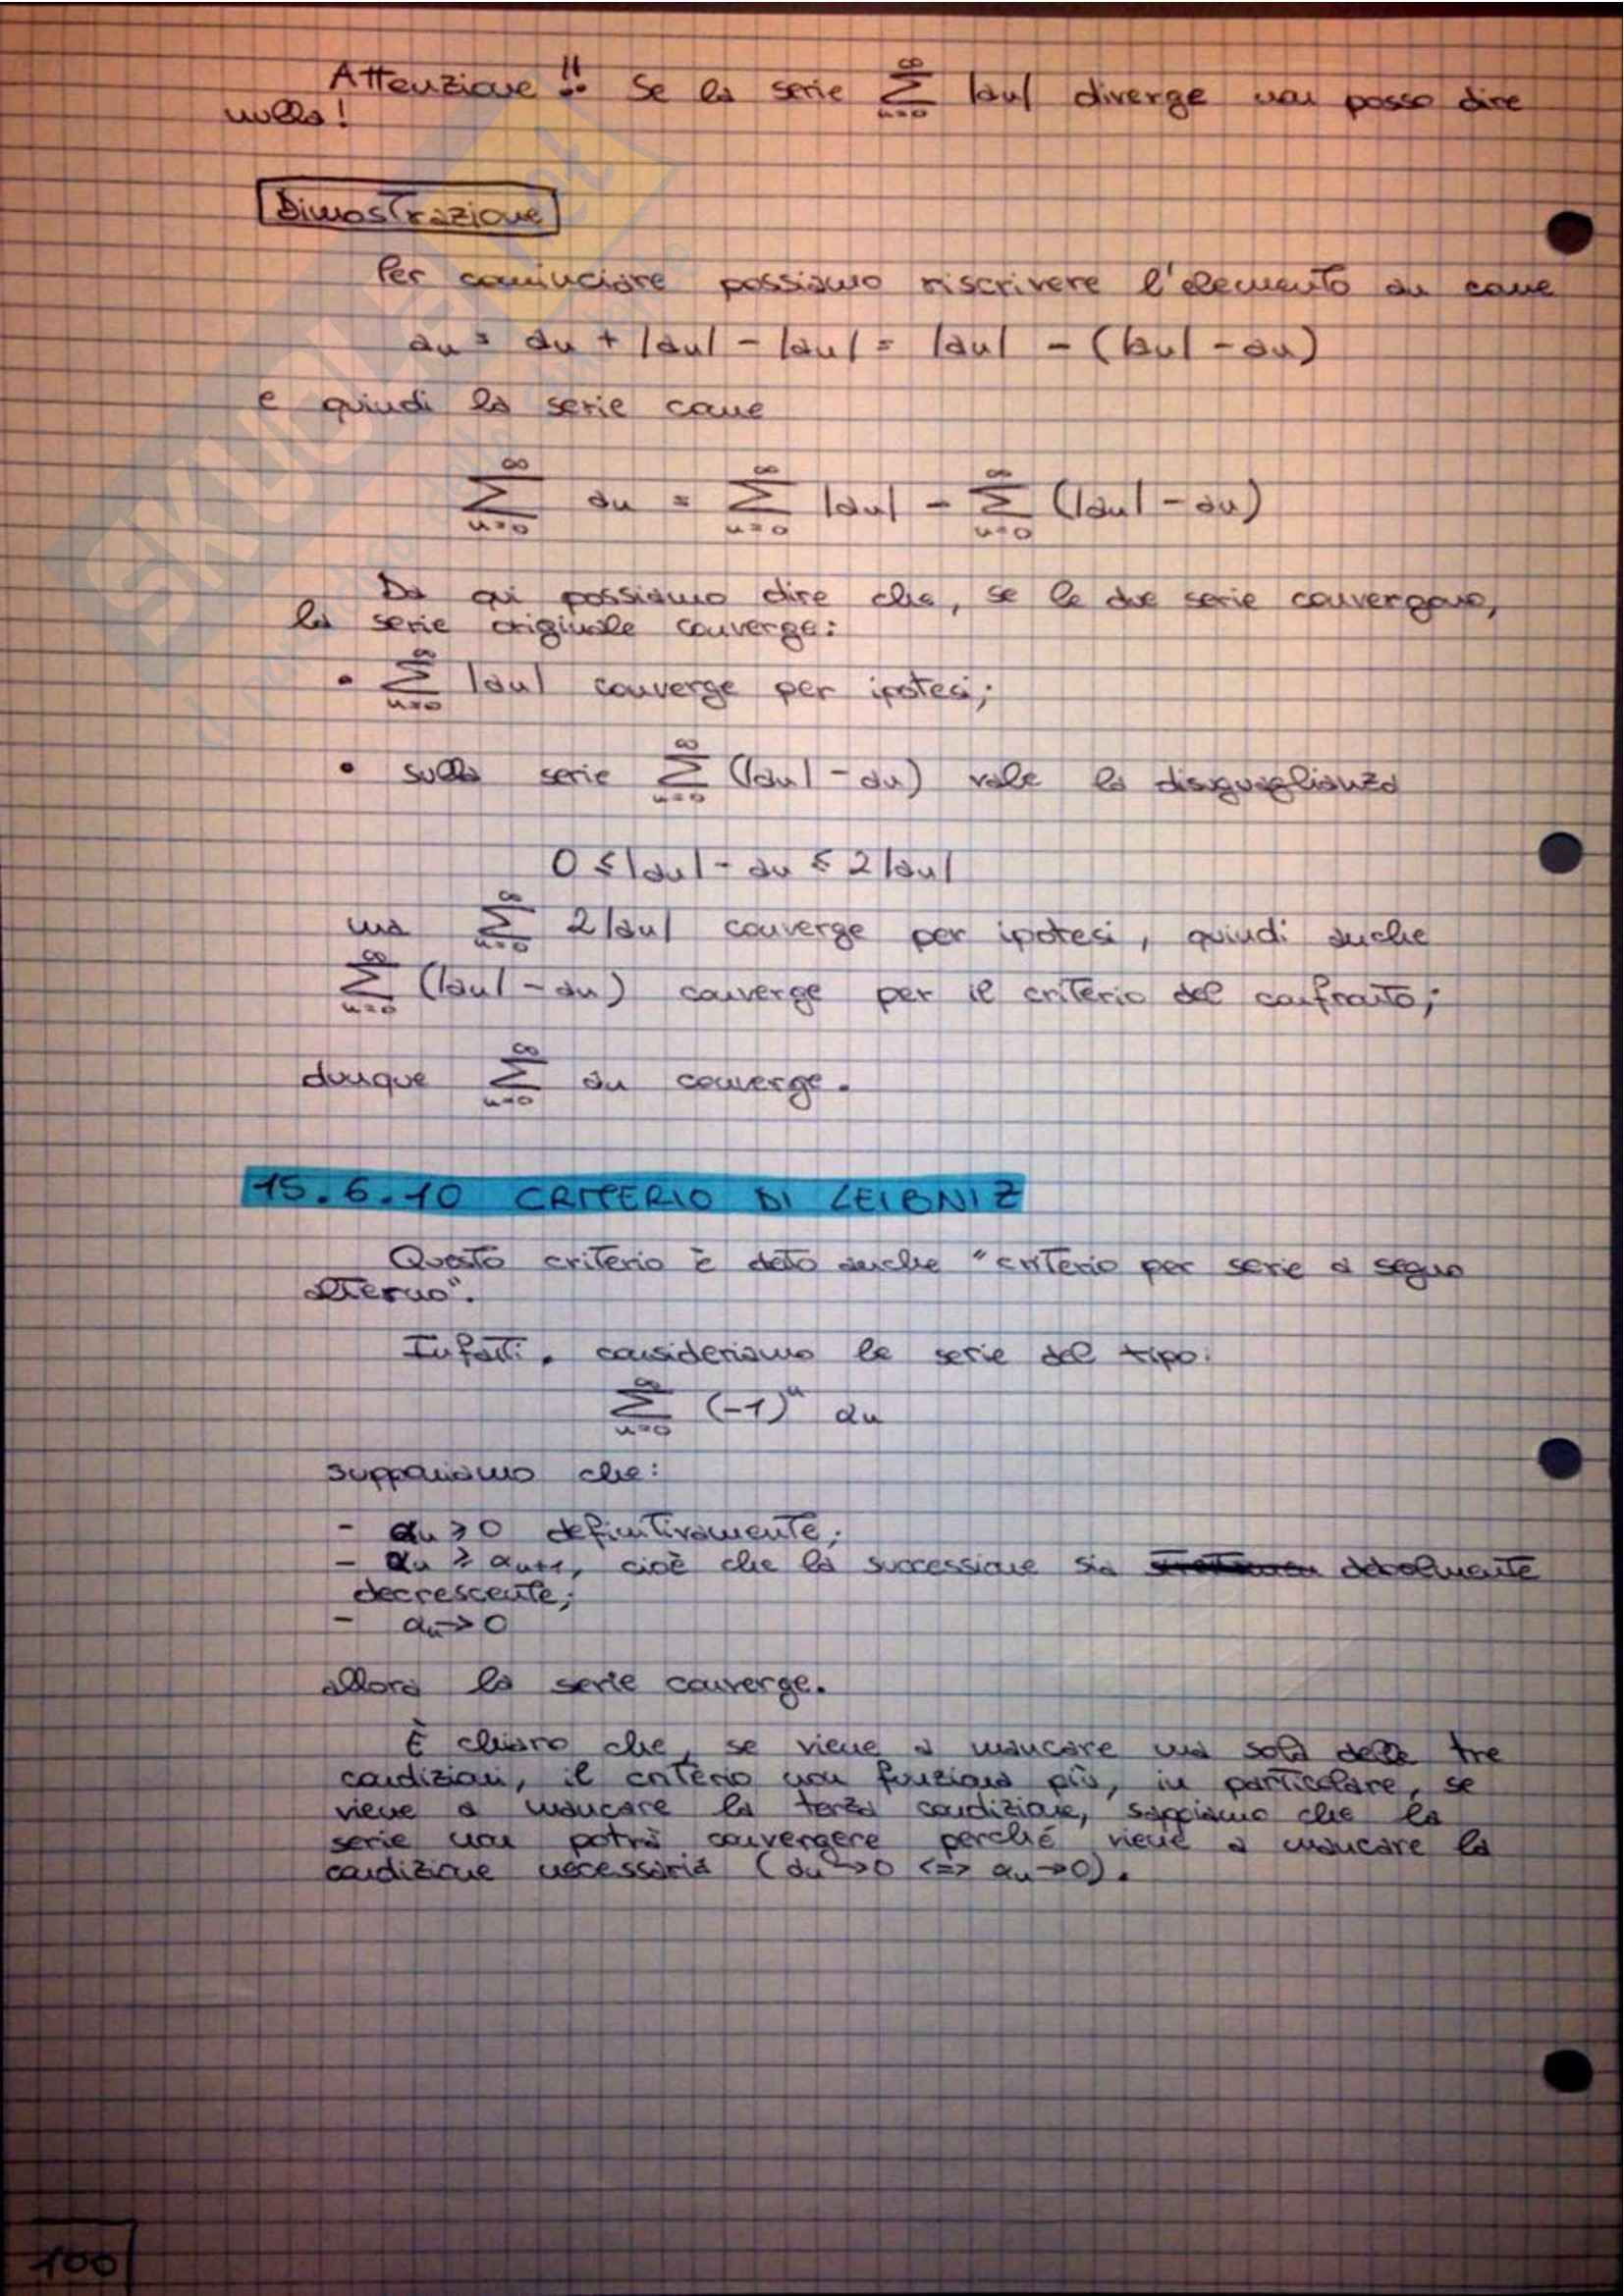 Attenzione!! Se la serie ∑_{n=0}^{∞} |an| diverge non posso dire
nulla!
Dimostrazione
Per cominciare possiamo riscrivere l'elemento an come
an = an + |an| - |an| = |an| - (|an| - an)
e quindi la serie come
∑_{n=0}^{∞} an = ∑_{n=0}^{∞} |an| - ∑_{n=0}^{∞} (|an| - an)
Da qui possiamo dire che, se le due serie convergono,
la serie originale converge:
• ∑_{n=0}^{∞} |an| converge per ipotesi;
• sulla serie ∑_{n=0}^{∞} (|an| - an) vale la disuguaglianza
0 ≤ |an| - an ≤ 2|an|
ma ∑_{n=0}^{∞} 2|an| converge per ipotesi, quindi anche
∑_{n=0}^{∞} (|an| - an) converge per il criterio del confronto;
dunque ∑_{n=0}^{∞} an converge.
15.6.10 CRITERIO DI LEIBNIZ
Questo criterio è detto anche "criterio per serie a segno
alterno".
Infatti, consideriamo le serie del tipo:
∑_{n=0}^{∞} (-1)^n αn
supponiamo che:
- αn ≥ 0 definitivamente;
- αn ≥ αn+1, cioè che la successione sia debolmente
decrescente;
- αn → 0
allora la serie converge.
È chiaro che, se viene a mancare una sola delle tre
condizioni, il criterio non funziona più, in particolare, se
viene a mancare la terza condizione, sappiamo che la
serie non potrà convergere perché viene a mancare la
condizione necessaria (an → 0 <=> αn → 0).
100
SKUOLA.net